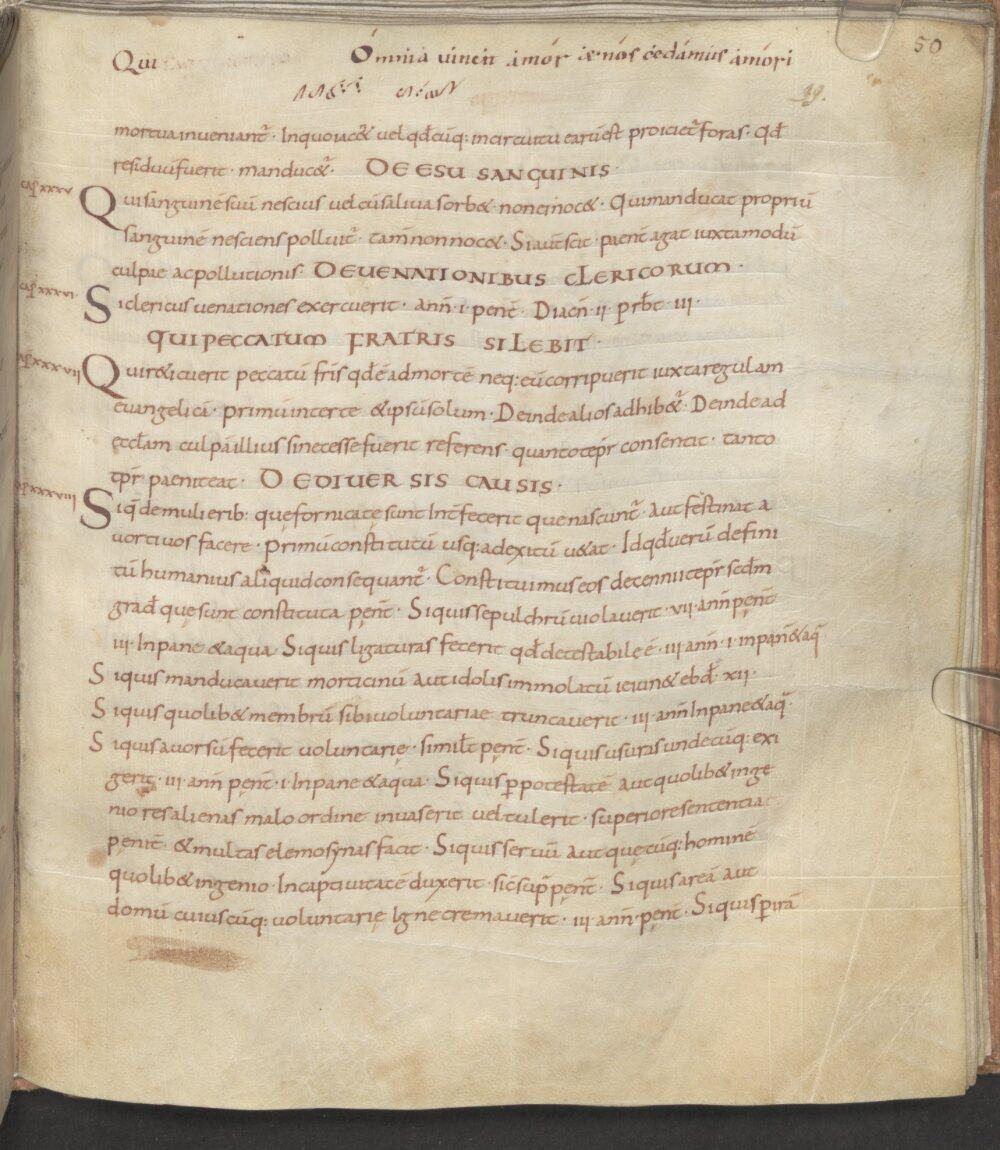 50
Qui Omnia vincit amor & nos cedamus amori
49.
mortua inveniant᷑ · In quo iac& vel qđcūq: in circuitu earū est proiciet᷑ foras · qđ
residuū fuerit · manduc&᷑ · DE ESU SANGUINIS ·
cap xxxv
Qui sanguinē suū nescius vel cū saliva sorb& · non ei noc& · Qui manducat propriū
sanguinē nesciens polluit᷑ · tam̄ non noc& · Si aut̄ scit · paent̄ agat iuxta modū
culpae ac pollutionis · DE UENATIONIBUS CLERICORUM ·
cap xxxvi
Si clericus venationes exercuerit · ann̄ · i · penit̄ · Diacn̄ · ii · prb̄t · iii ·
QUI PECCATUM FRATRIS SILEBIT ·
cap xxxvii
Qui r&icuerit peccatū fr̄is qđ ē ad mortē neq: eū corripuerit iuxta regulam
evangelicā · primū inter te & ipsū solum · Deinde alios adhib&᷑ · Deinde ad
eccłam culpā illius si necesse fuerit referens · quanto tēpr̄ consentit · tanto
tp̄r paeniteat · DE DIUERSIS CAUSIS ·
cap xxxviii
Siq̄ de mulierib: quę fornicatę sunt Int̄fecerit que nascunt᷑ · Aut festinat a
vortivos facere · primū constitutū usq: ad exitū v&at · Id qđ verū defini
tū humanius aliquid consequant᷑ · Constituimus eos decennii tēpr̄ scđm
grad̄ que sunt constituta pęnt̄ · Siquis sepulchrū violaverit · vii · ann̄ pęnit̄
iii · In pane & aqua · Siquis ligaturas fecerit qđ detestabile ē · iii ann̄ · i · in pan̄ & aq̄
Siquis manducaverit morticinū aut idolis immolatū ieiun& ebđ · xii ·
Siquis quolib& membrū sibi voluntariae truncaverit · iii · ann̄ In pane & aq̄ ·
Siquis avorsū fecerit voluntarię · simil̄t pent̄ · Siquis usuras undecūq: exi
gerit · iii · ann̄ penit̄ · i · In pane & aqua · Siquis p̄ potestatē aut quolib& inge
nio res alienas malo ordine invaserit vel tulerit · superiore sententia
pęnit̄ · & multas elemosynas faciat · Siquis servū aut quęcūq: hominē
quolib& ingenio · In captivitatē duxerit · sic̄ sup̄ pent̄ · Siquis areā aut
domū cuiuscūq: voluntarię Igne cremaverit · iii · ann̄ · pęnit̄ · Siquis p̄ irā